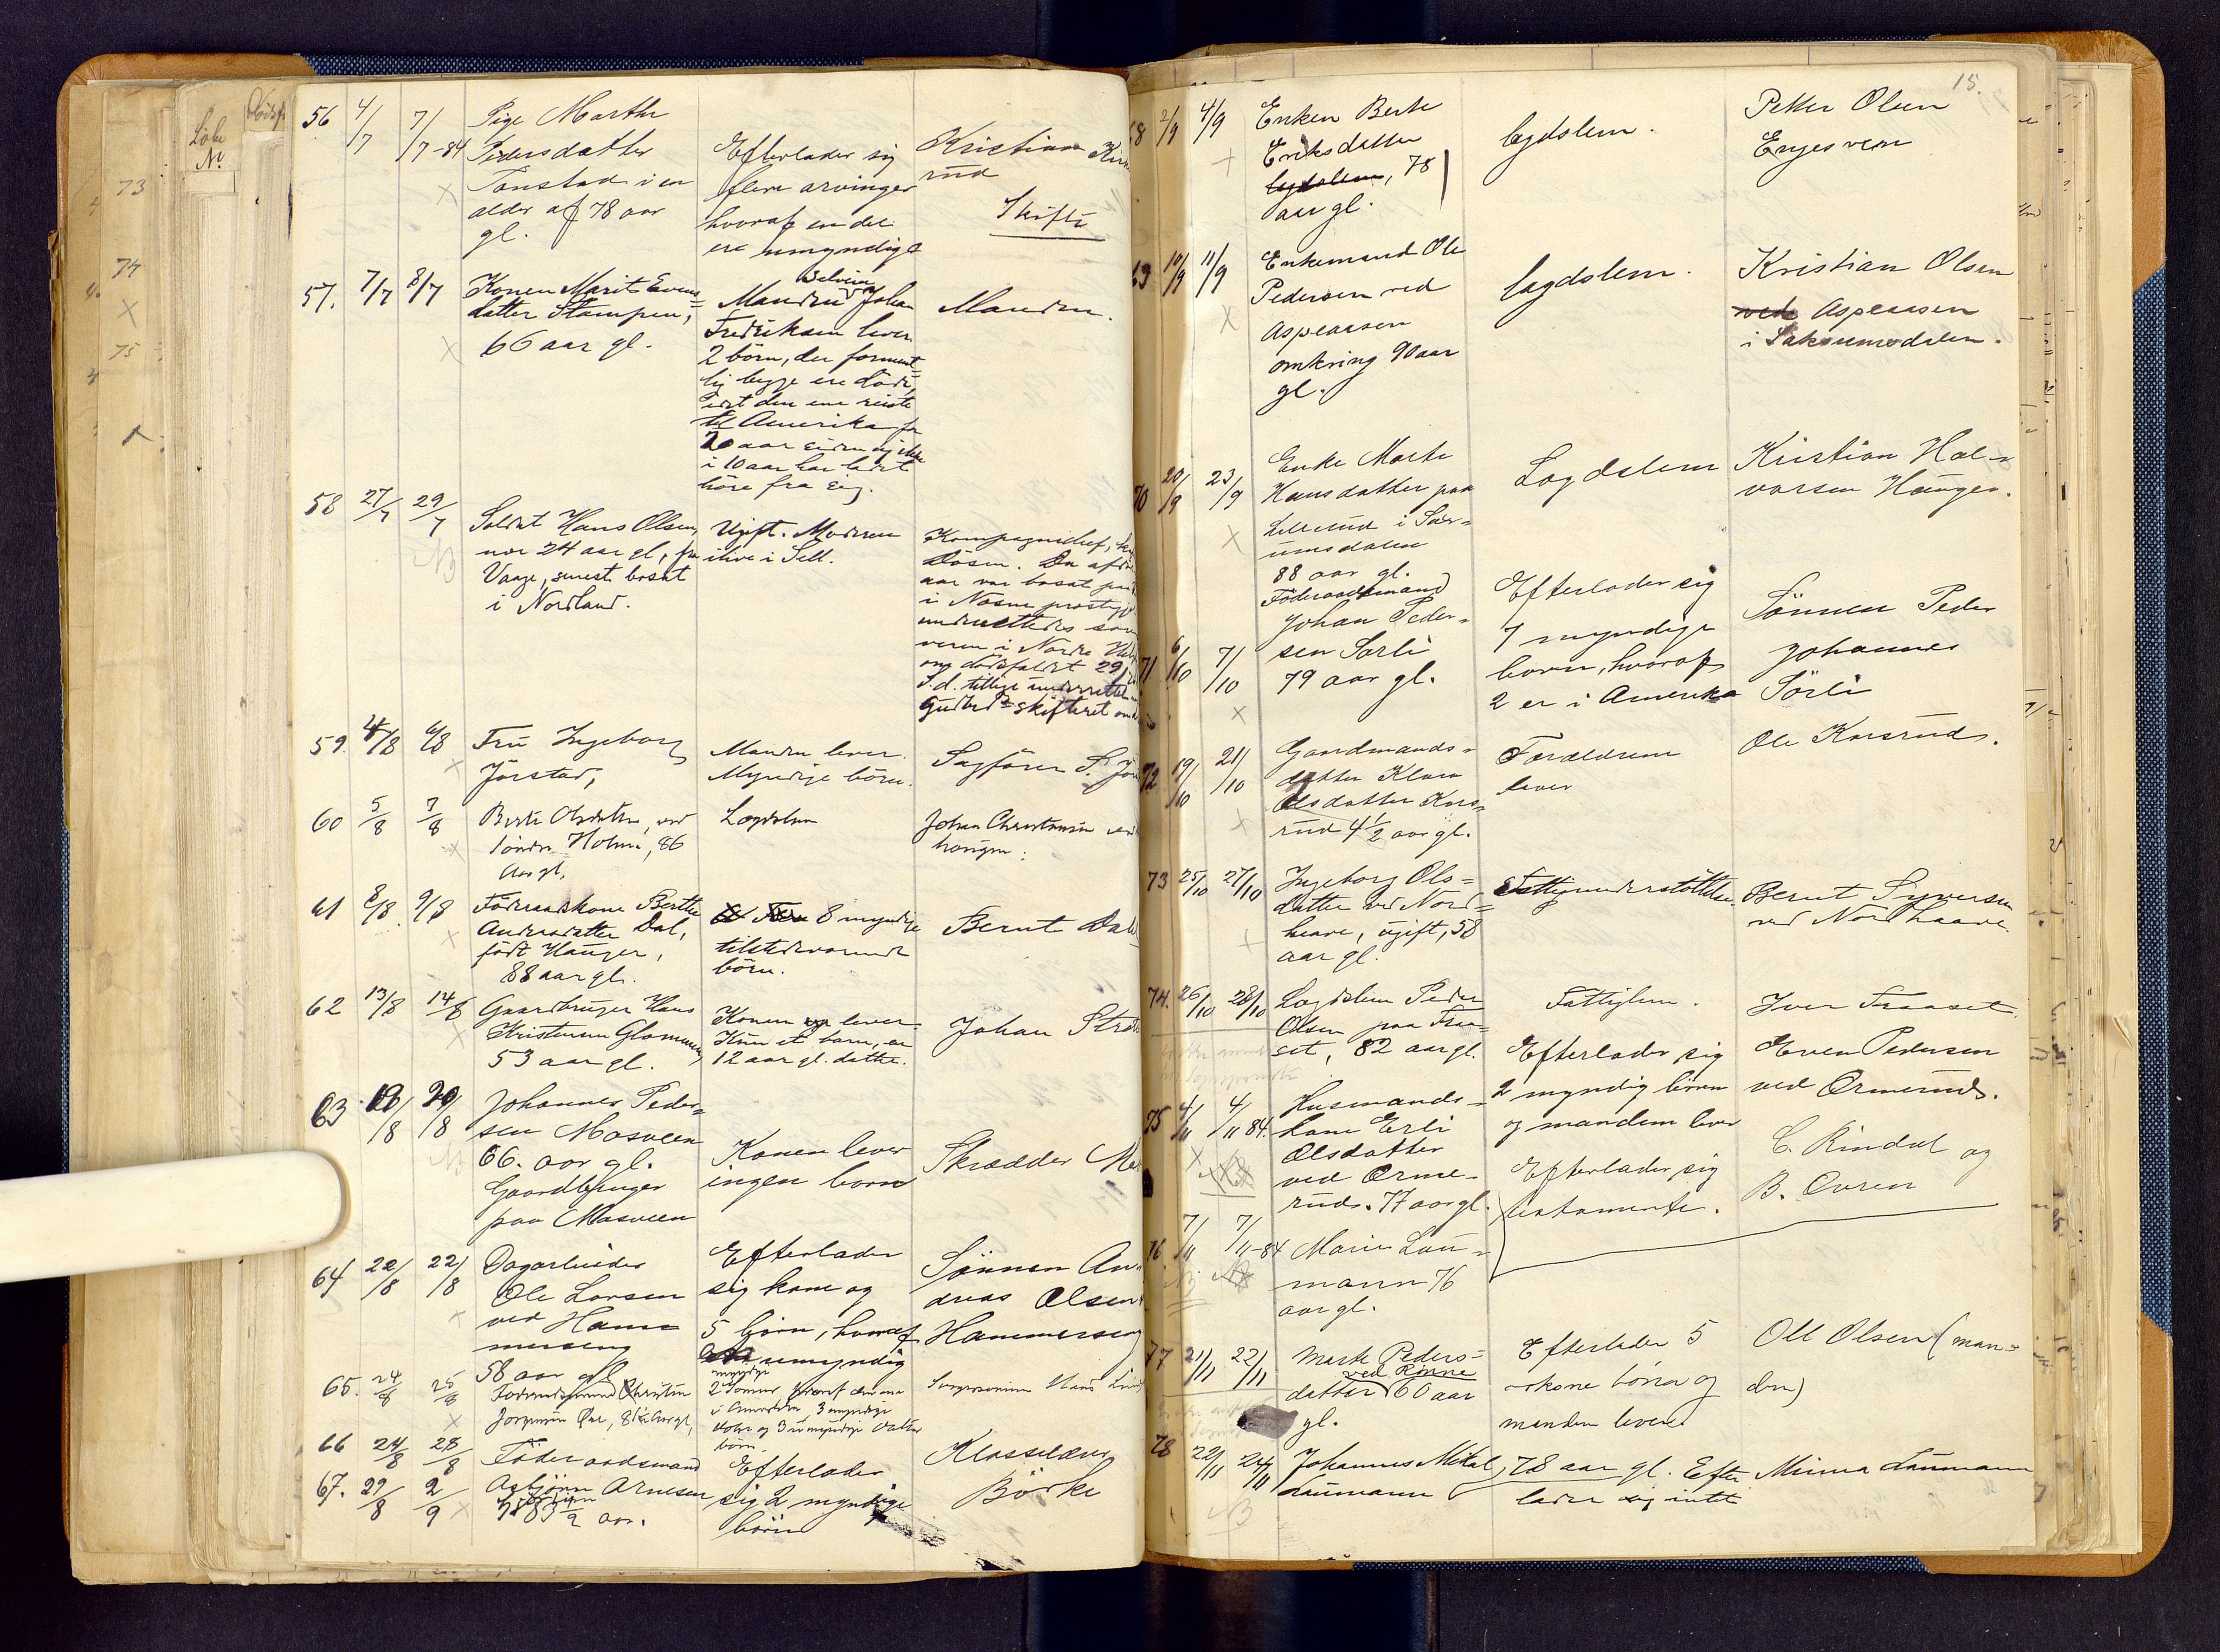 Løbe
No.
73
74
75
56 4/7 7/7-84
Pige Marthe
Pedersdatter
Tonstad i en
alder af 78 aar
gl.
Efterlader sig
flere arvinger
hvoraf en del
ere umyndige
Kristian
rud
Skifte
57. 7/7 8/7
Konen Marit Evens=
datter Stampen,
66 aar gl.
Manden Johan
Fredriksen lever
2 börn, der forment=
lig begge ere döde,
idet den ene reiste
til Amerika for
20 aar siden og ikke
i 10 aar har ladet
höre fra sig.
Manden.
58 27/7 29/7
Soldat Hans Olsen,
nær 24 aar gl, fra
Vaage, senest bosat
i Nordland.
Ugift. Moderen
ilive i Sell.
Kompagnichef,
Dösen. Den
aar var bosat
i Næsne præstegj
underrettedes
veren i Nordre
om dödsfaldet 29/
S.d. tillige underrettet
Gudbrd=skifteret om
59. 4/8 6/8
Fru Ingeborg
Jörstad,
Manden lever.
Myndige börn.
Sagförer S. Jör
60 5/8 7/8
Berte Olsdatter, ved
söndre Holme, 86
Aar gl.
Lægdslem
Johan Christiansen
haugen.
61 8/8. 9/8
Föderaadskone Berthe
Andersdatter Dal,
födt Hauger,
88 aar gl.
8 myndige
tilstedeværende
börn.
Bernt Dal
62 13/8 14/8
Gaardbruger Hans
Kristiansen Glommen,
53 aar gl.
Konen lever.
Kun et barn, en
12 aar gl. datter.
Johan Strø
63 19/8 20/8
Johannes Peder=
sen Mosveen
66. aar gl.
Gaardbruger
paa Mosveen
Konen lever
ingen børn
Skrædder
64 22/8 22/8
Dagarbeider
Ole Larsen
ved Ham=
merseng
58 aar gl
Efterlader
sig kone og
5 børn, hvoraf
umyndig
Sönnen An=
dreas Olsen
Hammerseng
65. 24/8 25/8
Föderaadsmand Christen
Jörgensen Dal, 81½ Aar gl,
myndige
2 Sönner hvoraf den ene
i Amerika, 3 myndige
dötre og 3 umyndige Datter
börn.
Hans
66 24/8 28/8
67. 29/8 2/9
Föderaadsmand
Asbjörn Arnesen
83½ aar.
Efterlader
sig 2 myndige
börn
Klokker
Börke
15.
68 2/9 4/9
Enken Berte
Eriksdatter
lægdslem, 78
aar gl.
lægdslem.
Petter Olsen
Engesveen
69 10/9 11/9
Enkemand Ole
Pedersen ved
Aspeaasen
omkring 90 aar
gl.
lægdslem.
Kristian Olsen
ved Aspeaasen
i Saksumsdalen.
70 20/9 23/9
Enke Marte
Hansdatter paa
Lillerud i Sax=
umsdalen
88 aar gl.
Lægdslem
Kristian Hal=
vorsen Hauger.
71 6/10 7/10
Föderaadsmand
Johan Peder=
sen Sørli
79 aar gl.
Efterlader sig
7 myndige
børn, hvoraf
2 er i Amerika
Sönnen Peder
Johannes
Sörli
72 19/10 21/10
Gaardmands=
datter Klara
Olsdatter Kors=
rud 4½ aar gl.
Forældrene
lever
Ole Korsrud.
73 25/10 27/10
Ingeborg Ols=
datter ved Nord=
haave, ugift, 58
aar gl.
Fattigunderstöttelse.
Bernt Syversen
ved Nordhaave.
74. 26/10 28/10
Lægdslem Peder
Olsen paa Fraa=
set, 82 aar gl.
Fattiglem.
Iver Fraaset.
75 4/11 4/11 84.
Husmands=
kone Erli
Olsdatter
ved Orme=
rud. 77 aar gl.
Efterlader sig
2 myndig börn
og manden lever
Even Pedersen
ved Ormerud.
76. 7/11 7/11-84
Marie Lau=
mann 76
aar gl.
Efterlader sig
testamente.
C. Rindal og
B. Övren
77 21/11 22/11
Marte Peders=
ved Rinne
datter 60 aar
gl.
Efterlader 5
voksne börn og
manden lever.
Ole Olsen (man=
den)
78 22/11 24/11
Johannes Mikal
Laumann
78 aar gl. Efter
lader sig intet
Minna Laumann